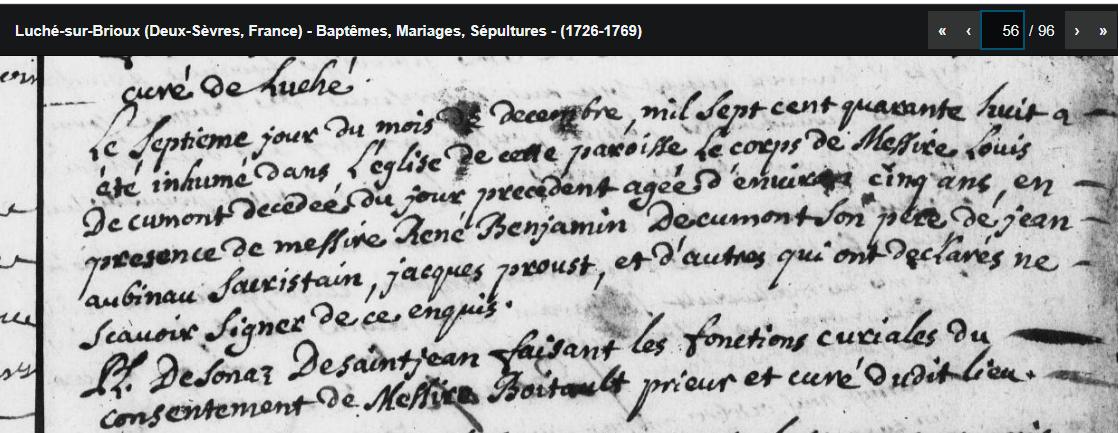 Luché-sur-Brioux (Deux-Sèvres, France) - Baptêmes, Mariages, Sépultures - (1726-1769)
« ‹ 56 / 96 › »
curé de Luché
Le septieme jour du mois de decembre, mil sept cent quarante huit a
été inhumé dans l'église de cette paroisse le corps de Messire Louis
Decumont decedée du jour precedent agée d'environ cinq ans, en
presence de messire René Benjamin Decumont son père de jean
aubinau sacristain, jacques proust, et d'autres qui ont declarés ne
scavoir signer de ce enquis.
Desonaz Desaintjean faisant les fonctions curiales du
consentement de Messire Boitault prieur et curé dudit lieu.